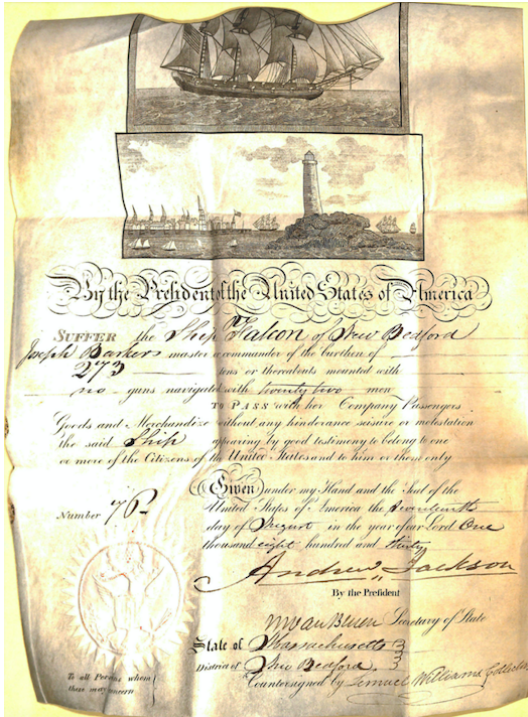 By the President of the United States of America
SUFFER the Ship Falcon of New Bedford
Joseph Barkers master or commander of the burthen of
273 tons or thereabouts mounted with
no guns navigated with twenty two men
TO PASS with her Company Passengers
Goods and Merchandize without any hinderance seisure or molestation
the said Ship appearing by good testimony to belong to one
or more of the Citizens of the United States and to him or them only
Given under my Hand and the Seal of the
United States of America the Seventeenth
day of August in the year of our Lord One
thousand eight hundred and thirty
Number 76
Andrew Jackson
By the President
M Van Buren Secretary of State
State of Massachusetts
District of New Bedford
Countersigned by Lemuel Williams Collector
To all Persons whom
these may concern